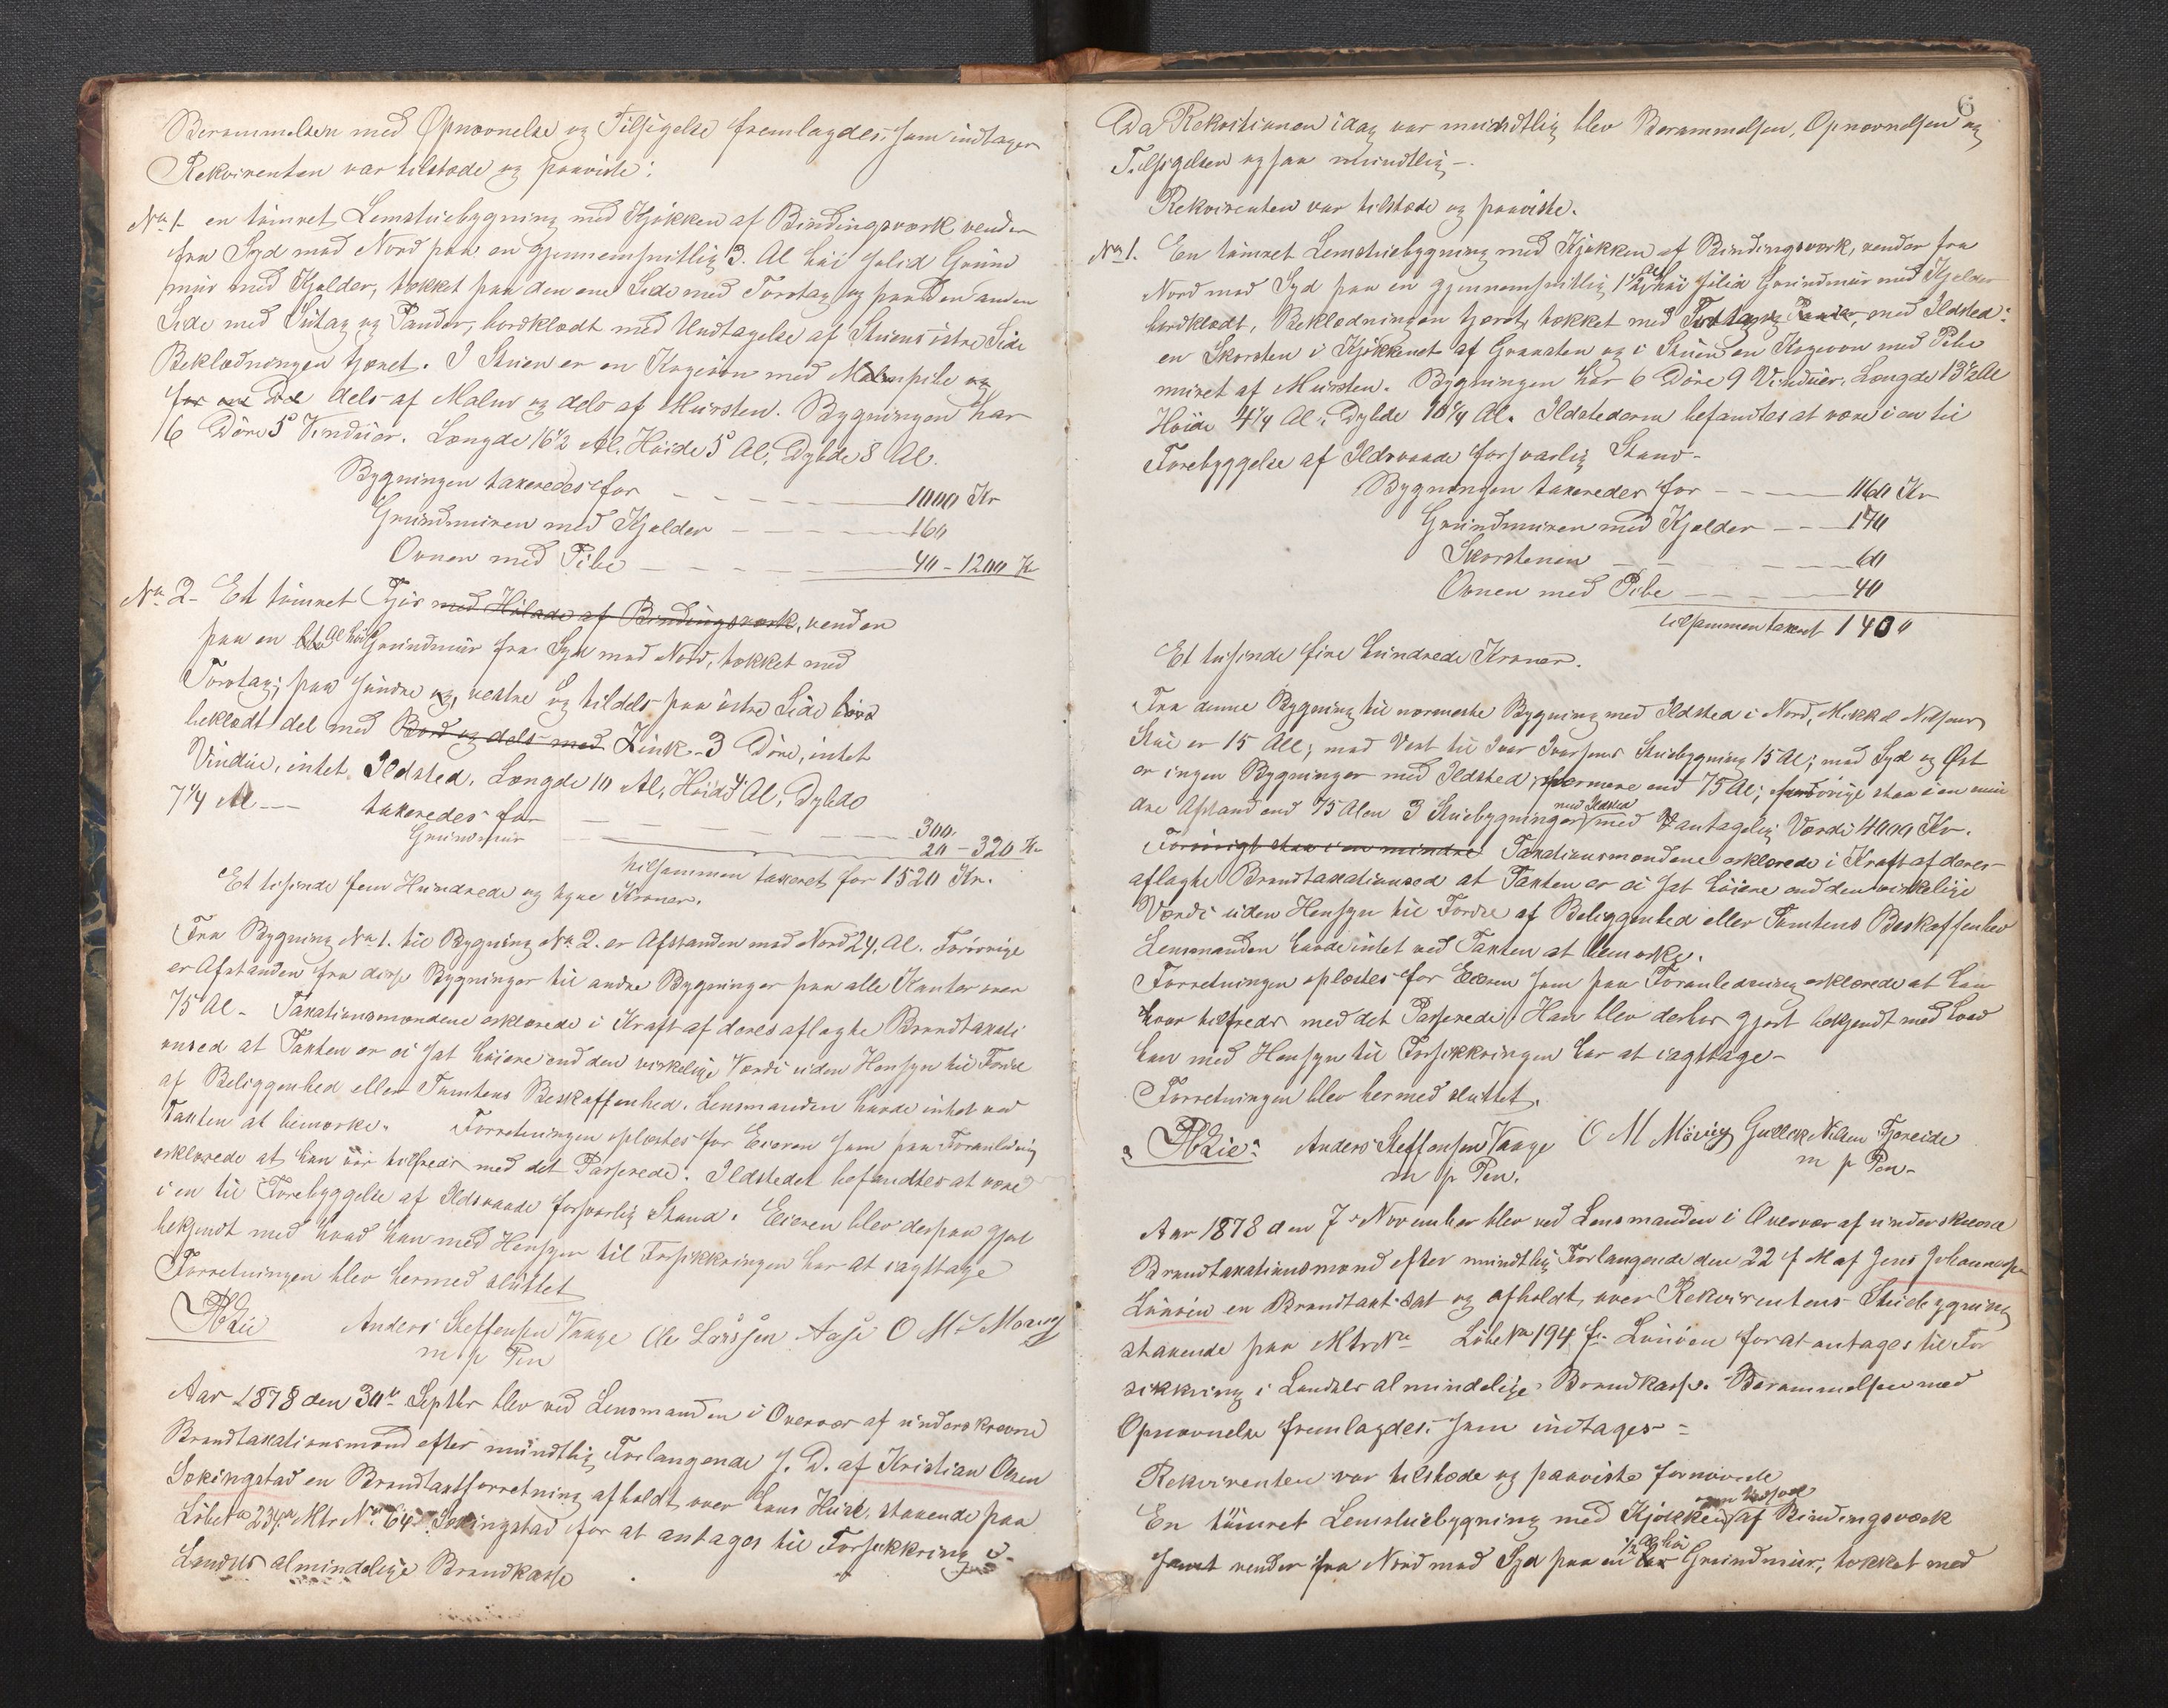 Berammelsen med Opnævnelse og Tilsigelse fremlagdes som indtages
Rekvirenten var tilstæde og paaviste:
No 1- en tømret Lemstuebygning med Kjøkken af Bindingsværk vender
fra Syd mod Nord paa en gjennemsnitlig 3. Al høi solid Grund
mur med Kjelder, tækket paa den ene Side med Torvtag og paa den anden
Side med Sutag og Pander, bordklædt med Undtagelse af Stuens østre Side
Beklædningen tjæret. I Stuen er en Kogeovn med Malmpibe og
dels af Malm og dels af Mursten. Bygningen har
6 Døre 5 Vinduer. Længde 16 1/2 Al. Høide 5 Al, Dybde 8 Al.
Bygningen taxeredes for — 1000 Kr
Grundmuren med Kjelder — 160
Ovnen med Pibe — 40 - 1200 Kr
No 2- Et tømret Fjøs med Hølade af Bindingsværk, vender
paa en Al høi Grundmur fra Syd mod Nord, tækket med
Torvtag; paa søndre og vestre og tildels paa østre Side bord
beklædt del med Bord og dels med Zink- 3 Døre, intet
Vindue, intet Ildsted. Længde 10 Al, Høide 4 Al, Dybde
7 1/4 Al — taxeredes for — 300
Grundmur — 20 - 320 Kr
tilsammen taxeret for 1520 Kr.
Et tusinde fem Hundrede og tyve Kroner.
Fra Bygning No 1. til Bygning No 2. er Afstanden mod Nord 24. Al. Forøvrigt
er Afstanden fra disse Bygninger til andre Bygninger paa alle Kanter over
75 Al - Taxationsmændene erklærede i Kraft af deres aflagte Brandtaxati
onsed at Taxten er ei sat høiere end den virkelige Værdi uden Hensyn til Fordel
af Beliggenhed eller Tomtens Beskaffenhed. Lensmanden havde intet ved
Taxten at bemærke. Forretningen oplæstes for Eieren som paa Foranledning
erklærede at han var tilfreds med det Passerede. Ildstedet befandtes at være
i en til Forebyggelse af Ildsvaade forsvarlig Stand. Eieren blev derpaa gjort
bekjendt med hvad han med Hensyn til Forsikkringen har at iagttage
Forretningen blev hermed sluttet
Anders Steffensen Vaage Ole Larssen Aase O M Møvig
m p Pen
Aar 1878 den 30te Septbr blev ved Lensmanden i Overvær af underskrevne
Brandtaxationsmænd efter mundtlig Forlangende s. D. af Kristian Olsen
Sekingstad en Brandtaxtforretning afholdt over hans Huse, staaende paa
Løbe No 234a Mtr No 64 Sekingstad for at antages til Forsikkring i
Landets almindelige Brandkasse
6
Da Rekvisitionen idag var mundtlig blev Berammelsen, Opnævnelsen og
Tilsigelsen ogsaa mundtlig -.
Rekvirenten var tilstæde og paaviste.
No 1. En tømret Lemstuebygning med Kjøkken af Bindingsværk, vender fra
Nord mod Syd paa en gjennemsnitlig 1 1/2 Al høi solid Grundmur med Kjelder
bordklædt, Beklædningen tjæret, tækket med Torvtag og Pander, med Ildsted:
en Skorsten i Kjøkkenet af Graasten og i Stuen en Kogeovn med Pibe
muret af Mursten. Bygningen har 6 Døre 9 Vinduer. Længde 13 1/2 Al
Høide 4 1/4 Al; Dybde 10 1/4 Al. Ildstederne befandtes at være i en til
Forebyggelse af Ildsvaade forsvarlig Stand-
Bygningen taxeredes for — 1160 Kr
Grundmuren med Kjelder — 140
Skorstenen — 60
Ovnen med Pibe — 40
tilsammen taxeret 1400
Et tusinde fire hundrede Kroner.
Fra denne Bygning til nærmeste Bygning med Ildsted i Nord, Mikkel Nilsens
Stue er 15 All; mod Vest til Iver Iversens Stuebygning 15 Al; mod Syd og Øst
er ingen Bygninger med Ildsted nærmere end 75 Al; forøvrigt staa i en min
dre Afstand end 75 Alen 3 Stuebygninger med Ildsted med antagelig Værdi 4000 Kr.
Forøvrigt staa i en mindre Taxationsmændene erklærede i Kraft af deres
aflagte Brandtaxationsed at Taxten er ei sat høiere end den virkelige
Værdi uden Hensyn til Fordel af Beliggenhed eller Tomtens Beskaffenhed
Lensmanden havde intet ved Taxten at bemærke.
Forretningen oplæstes for Eieren som paa Foranledning erklærede at han
var tilfreds med det Passerede. Han blev derhos gjort bekjendt med hvad
han med Hensyn til Forsikkringen har at iagttage-
Forretningen blev hermed sluttet.
Anders Steffensen Vaage O M Møvig Gullak Nilsen Fjæreide
m p Pen. m p Pen-
Aar 1878 den 7de November blev ved Lensmanden i Overvær af underskrevne
Brandtaxationsmænd efter mundtlig Forlangende den 22 f M af Jens Johannessen
Lønøen en Brandtaxt sat og afholdt over Rekvirentens Stuebygning
staaende paa Mtr No Løbe No 194 Lønøen for at antages til For
sikkring i Landets almindelige Brandkasse. Berammelsen med
Opnævnelse fremlagdes som indtages -
Rekvirenten var tilstæde og paaviste
En tømret Lemstuebygning med Kjøkken af Bindingsværk
samt vender fra Nord mod Syd paa en 1/2 Al høi Grundmur, tækket med